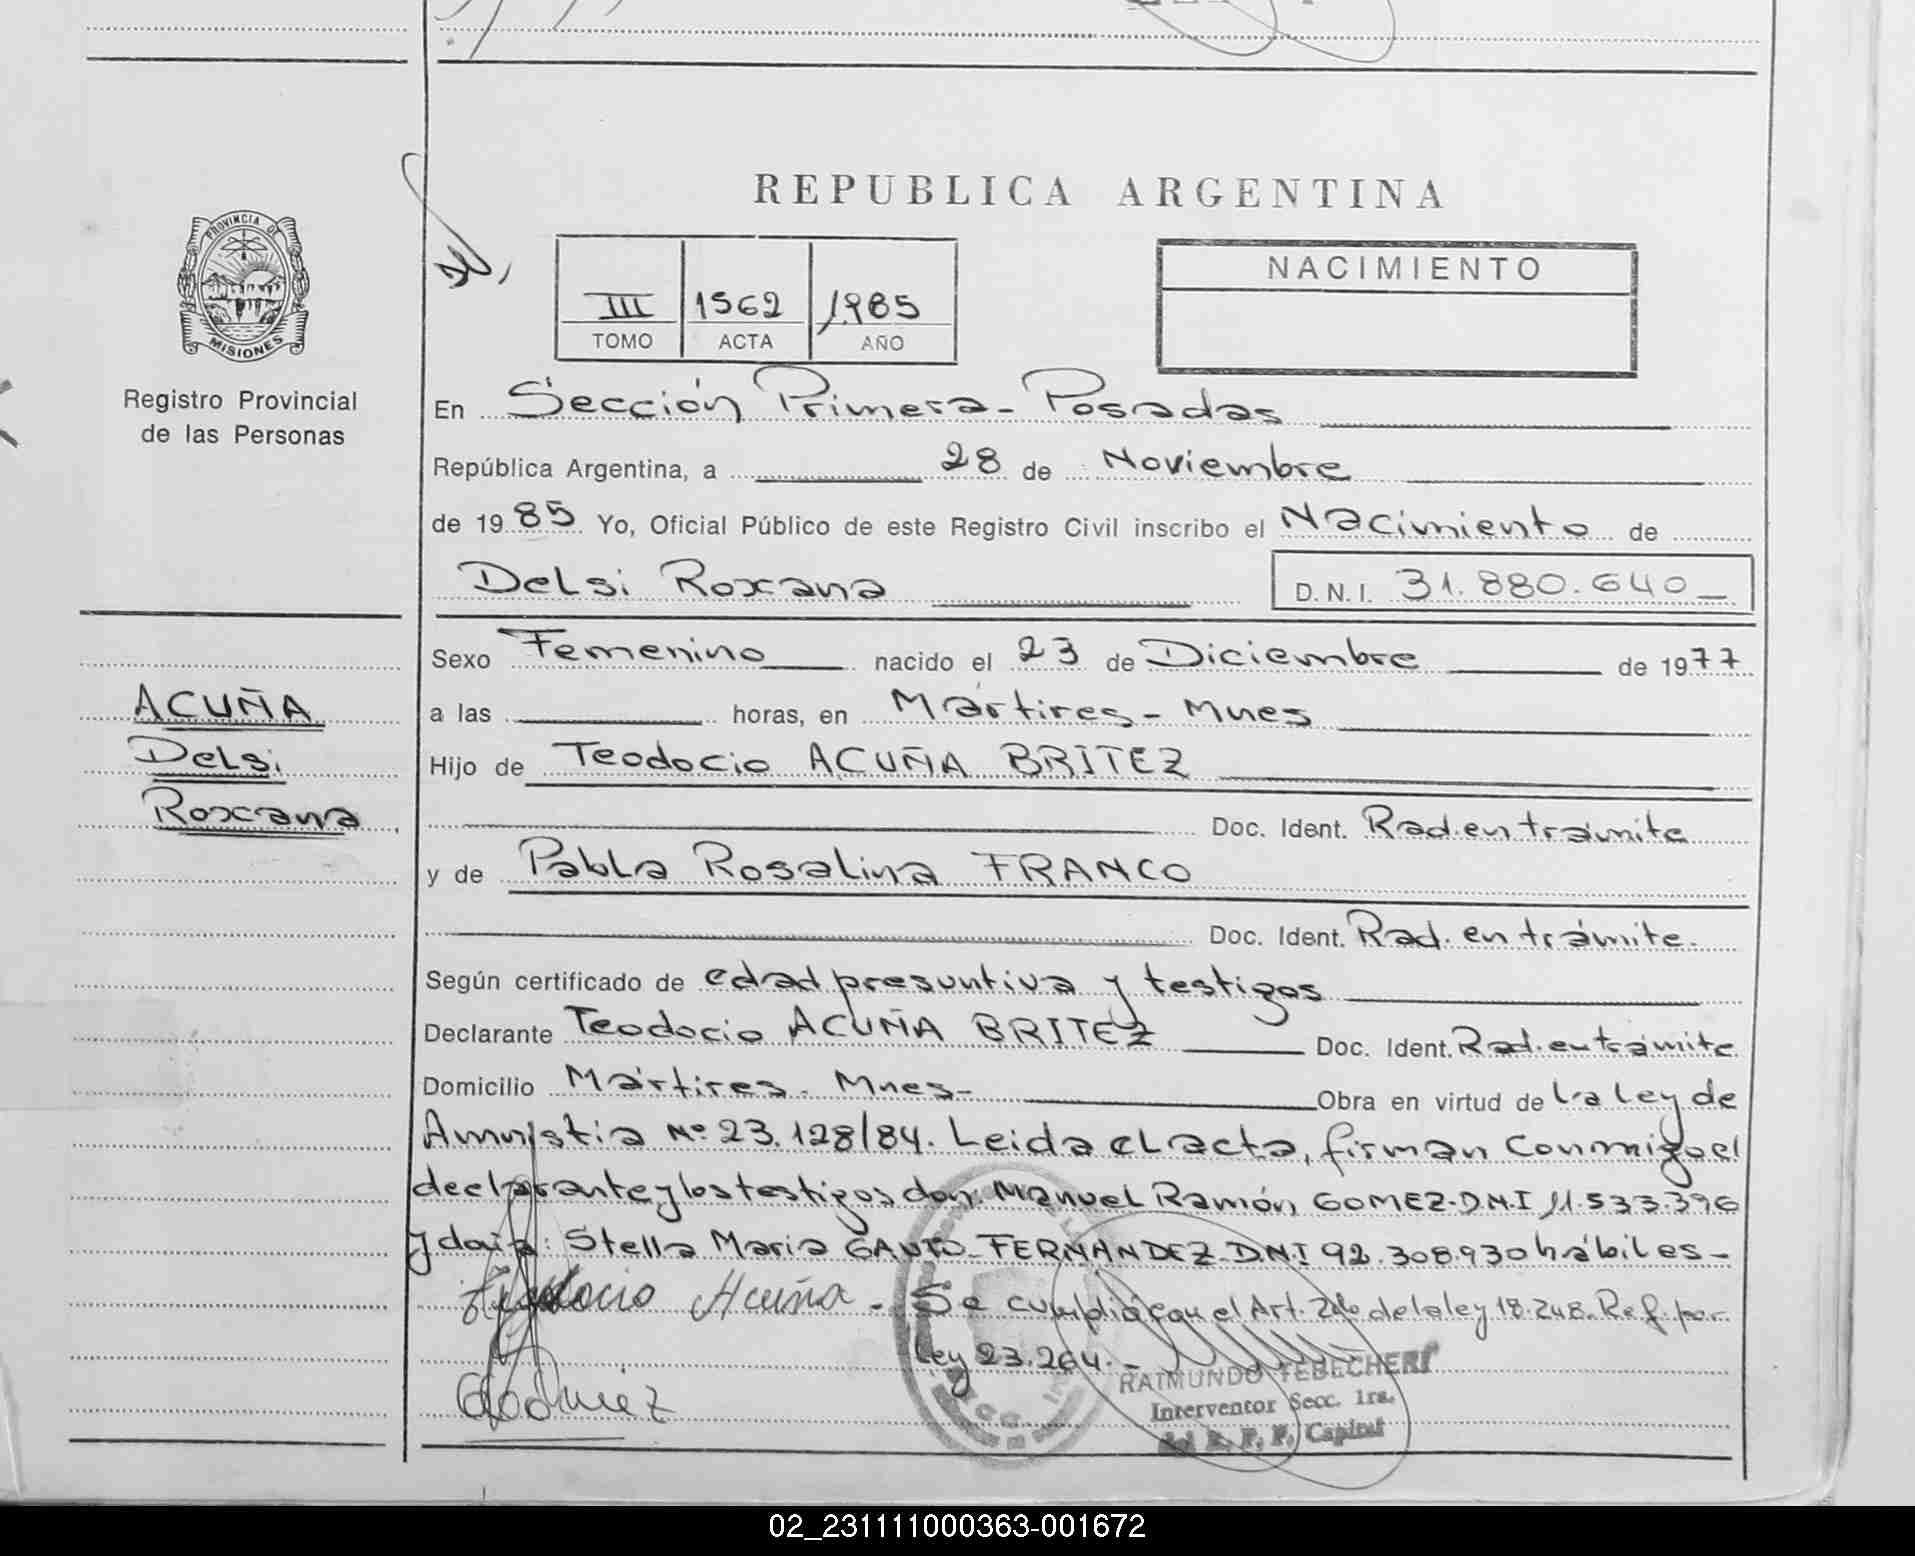 REPUBLICA ARGENTINA
PROVINCIA DE
MISIONES
Registro Provincial
de las Personas
III 1562 1985
TOMO ACTA AÑO
NACIMIENTO
En Sección Primera - Posadas
República Argentina, a 28 de Noviembre
de 1985 Yo, Oficial Público de este Registro Civil inscribo el Nacimiento de
Delsi Roxana D.N.I. 31.880.640
Sexo Femenino nacido el 23 de Diciembre de 1977
ACUÑA
Delsi
Roxana
a las horas, en Mártires - Mnes
Hijo de Teodocio ACUÑA BRITEZ
Doc. Ident. Rad. en trámite
y de Pabla Rosalina FRANCO
Doc. Ident. Rad. en trámite.
Según certificado de edad presuntiva y testigos
Declarante Teodocio ACUÑA BRITEZ Doc. Ident. Rad. en trámite
Domicilio Mártires - Mnes - Obra en virtud de La Ley de
Amnistia Nº 23.128/84. Leida el acta, firman conmigo el
declarante y los testigos don: Manuel Ramón GOMEZ - D.N.I 11.533.396
y doña: Stella Maria FERNANDEZ - D.N.I 92.308.930 hábiles -
Teodocio Acuña - Se cumplió con el Art. de la ley 18.248. Ref. por
Ley 23.264. -
RAIMUNDO TEBECHERI
Interventor Secc. 1ra.
del R. P. P. Capital
02_231111000363-001672